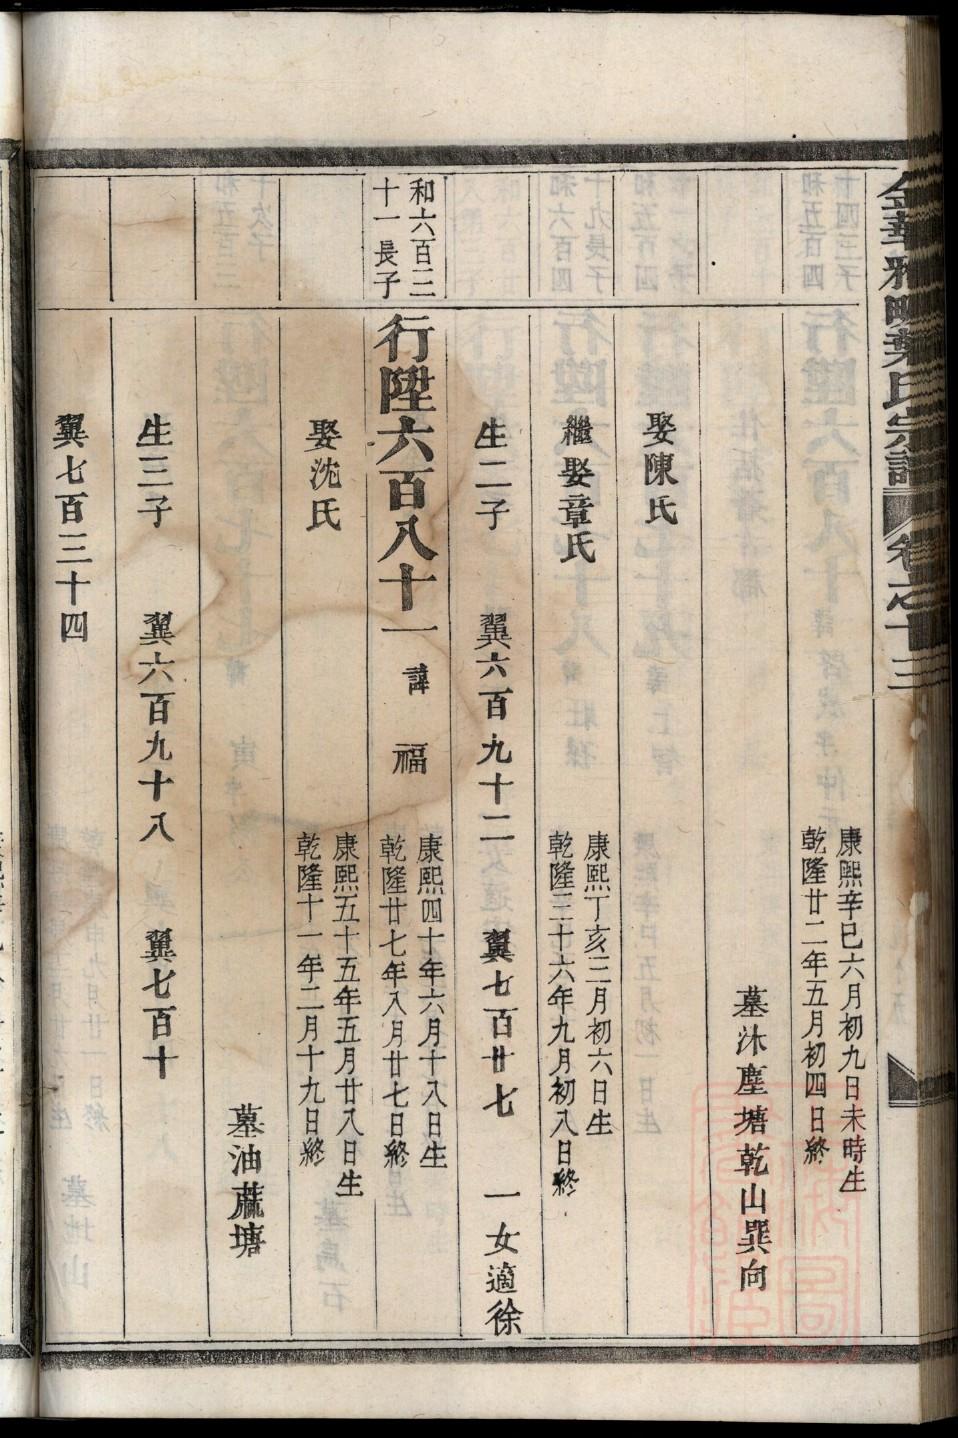 金華雅畈葉氏宗譜 卷之十三
康熙辛巳六月初九日未時生
乾隆廿二年五月初四日終
墓沐塵塘乾山巽向
娶陳氏
康熙丁亥三月初六日生
繼娶章氏
乾隆三十六年九月初八日終
生二子 翼六百九十二 翼七百廿七 一女適徐
和六百二
十一長子
行陞六百八十一 諱 福
康熙四十年六月十八日生
乾隆廿七年八月廿七日終
娶沈氏
康熙五十五年五月廿八日生
乾隆十一年二月十九日終
墓油蔴塘
生三子 翼六百九十八 翼七百十
翼七百三十四